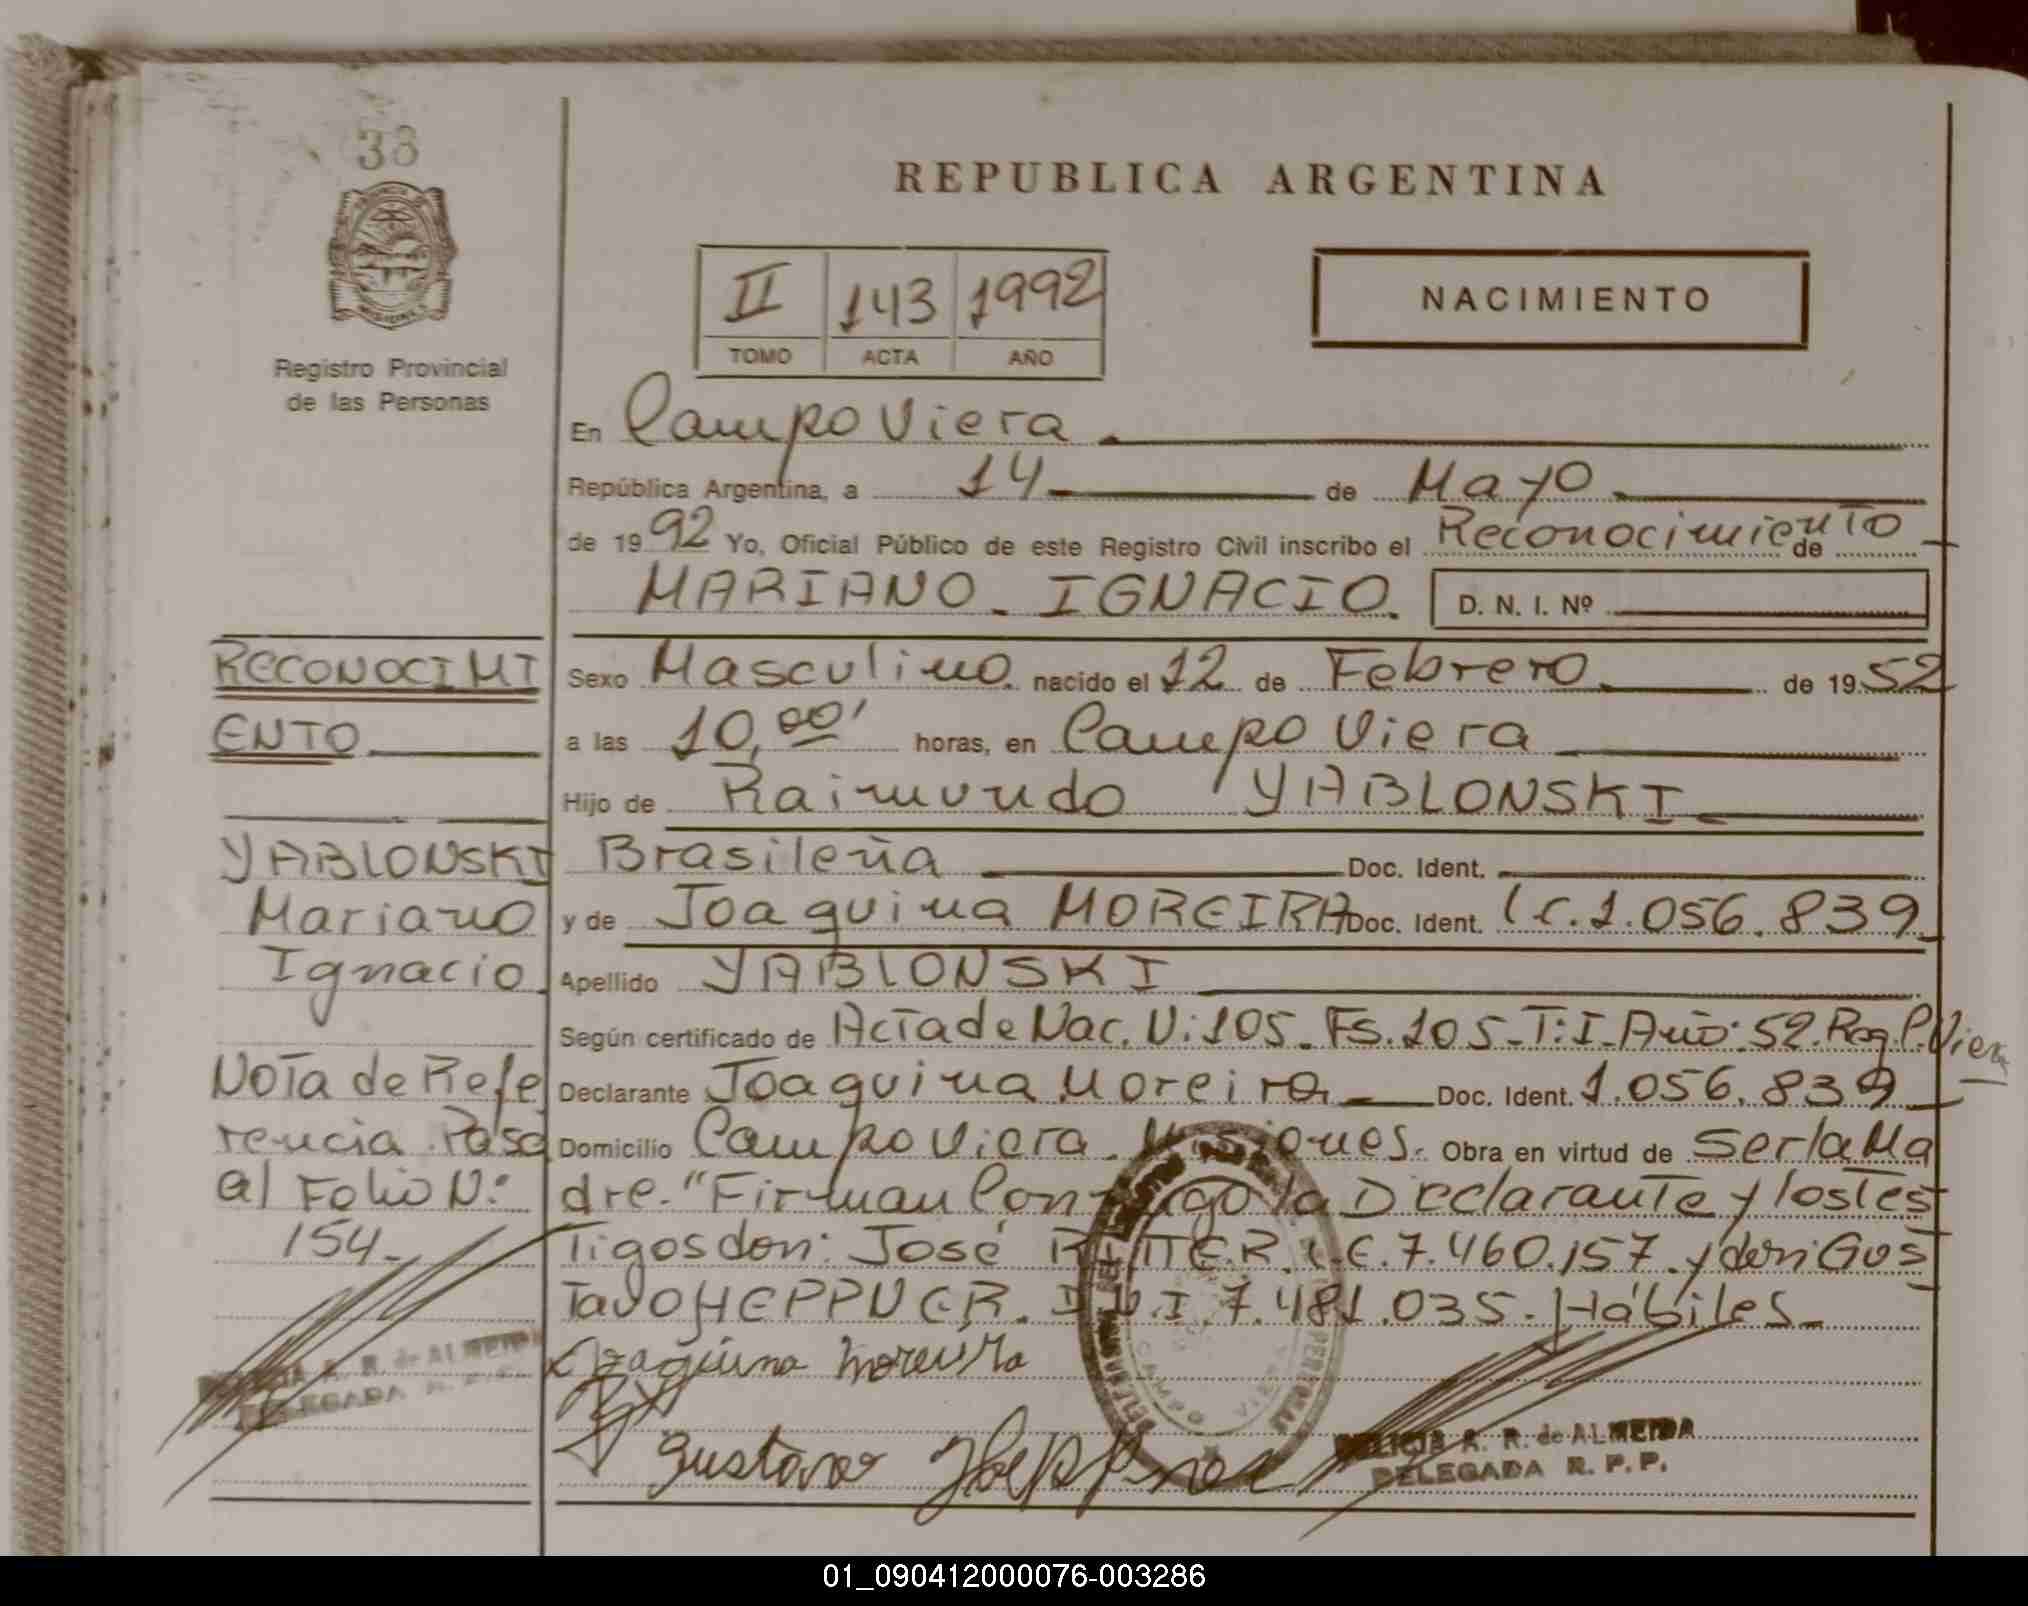 38
REPUBLICA ARGENTINA
II 143 1992
TOMO ACTA AÑO
NACIMIENTO
Registro Provincial
de las Personas
En Campo Viera
República Argentina, a 14 de Mayo
de 1992 Yo, Oficial Público de este Registro Civil inscribo el Reconocimiento de
MARIANO IGNACIO. D. N. I. Nº
Sexo Masculino nacido el 12 de Febrero de 1952
a las 10,00' horas, en Campo Viera
Hijo de Raimundo YABLONSKI
Brasileña Doc. Ident.
y de Joaquina MOREIRA Doc. Ident. L.C. 1.056.839
Apellido YABLONSKI
Según certificado de Acta de Nac. N: 105. Fs. 105-T: I. Año: 52. Reg. C. Viera
Declarante Joaquina Moreira Doc. Ident. 1.056.839
Domicilio Campo Viera. Misiones. Obra en virtud de Ser la Ma
dre. "Firman Conmigo la Declarante y los Tes
Tigos don: José L.E. 7.460.157. y don: Gus
Tavo HEPPNER. D.N.I. 7.481.035. Hábiles
RECONOCIMI
ENTO
YABLONSKI
Mariano
Ignacio
Nota de Refe
rencia Pasa
al Folio N:
154.
Joaquina Moreira
Gustavo Heppner
CAMPO VIERA
A. R. de ALMEIDA
DELEGADA R. P. P.
A. R. de ALMEIDA
DELEGADA R. P. P.
01_090412000076-003286